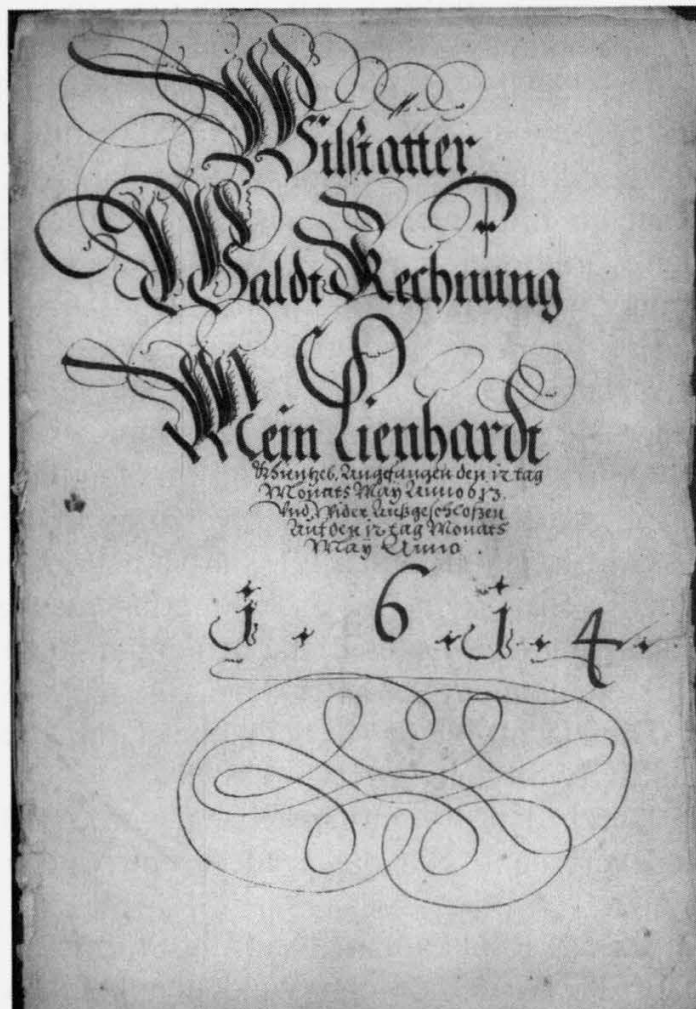 Wilstätter
Waldt Rechnung
Mein Lienhardt
Angefangen den 12 tag
Monats May Anno 613.
Vnd Wider Außgeschloßen
Auf den 12 tag Monats
May Anno.
1. 6. 1. 4.